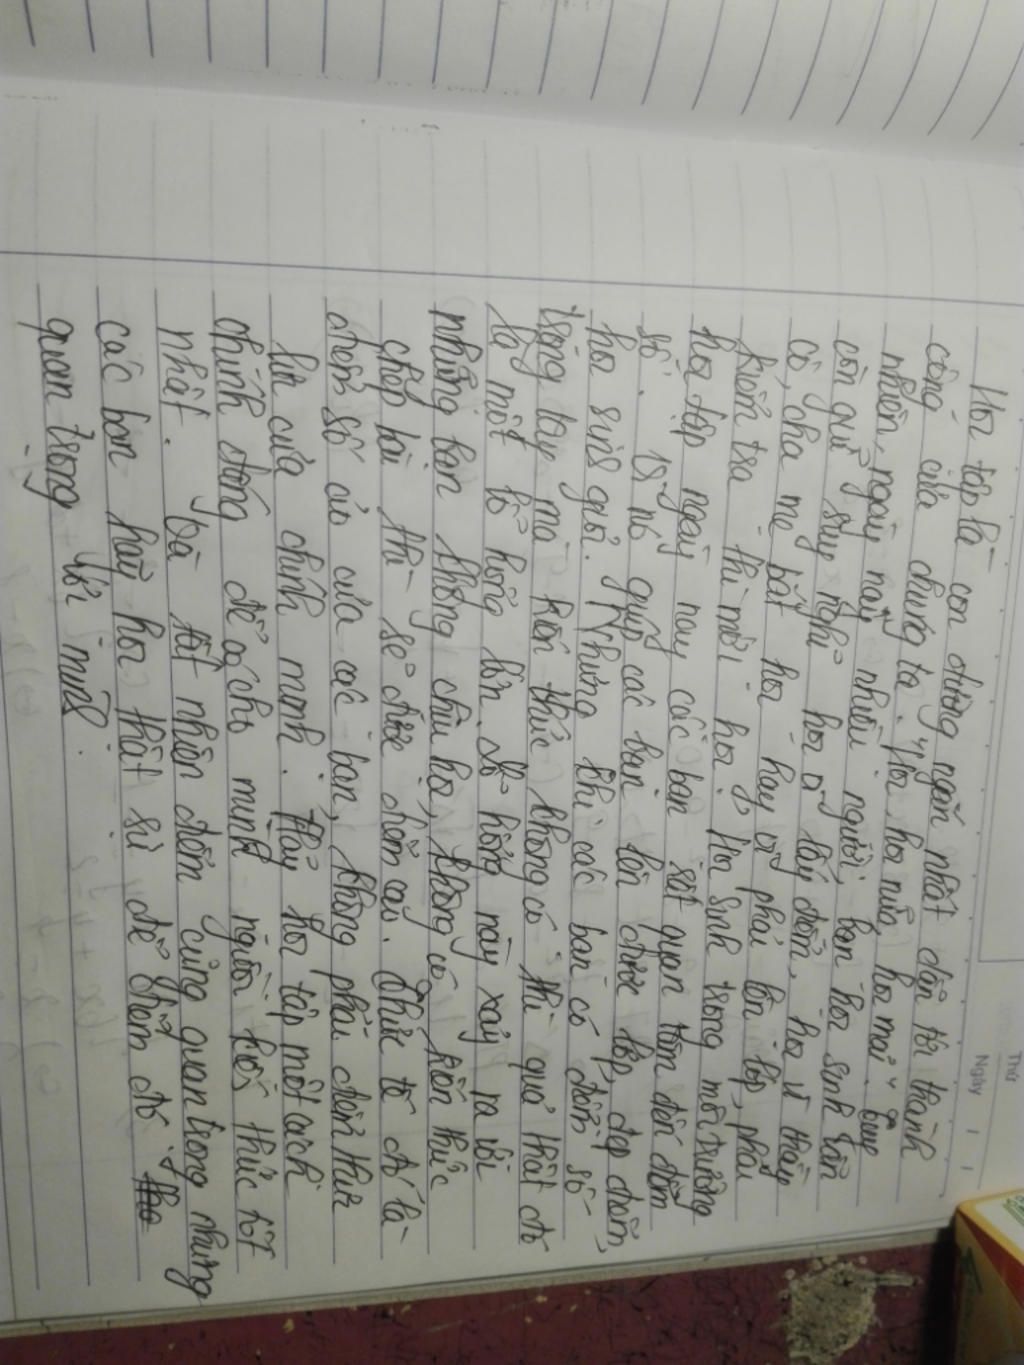 Thứ
Ngày
Học tập là con đường ngắn nhất dẫn tới thành
công của chúng ta. "Học, học nữa, học mãi". Tuy
nhiên, ngày nay nhiều người, bạn học sinh vẫn
còn giữ suy nghĩ học vì lấy điểm, học vì thầy
cô, cha mẹ bắt học hay vì phải lên lớp, phải
kiểm tra thì mới học. Học sinh trong môi trường
học tập ngày nay các bạn rất quan tâm đến điểm
số. Vì nó giúp các bạn lên được lớp, đẹp điểm,
học sinh giỏi. Nhưng khi các bạn có điểm số
trong tay mà kiến thức không có thì quả thật đó
là một lỗ hổng lớn. Lỗ hổng này xảy ra với
những bạn không chịu học, không có kiến thức
chép bài thì sẽ được điểm cao. Thực tế đó là
điểm số ảo của các bạn, không phải điểm thực
lực của chính mình. Hãy học tập một cách
chính đáng để có cho mình nguồn kiến thức tốt
nhất. Và tất nhiên điểm cũng quan trọng nhưng
các bạn hãy học thật sự để điểm đó
quan trọng với mình.